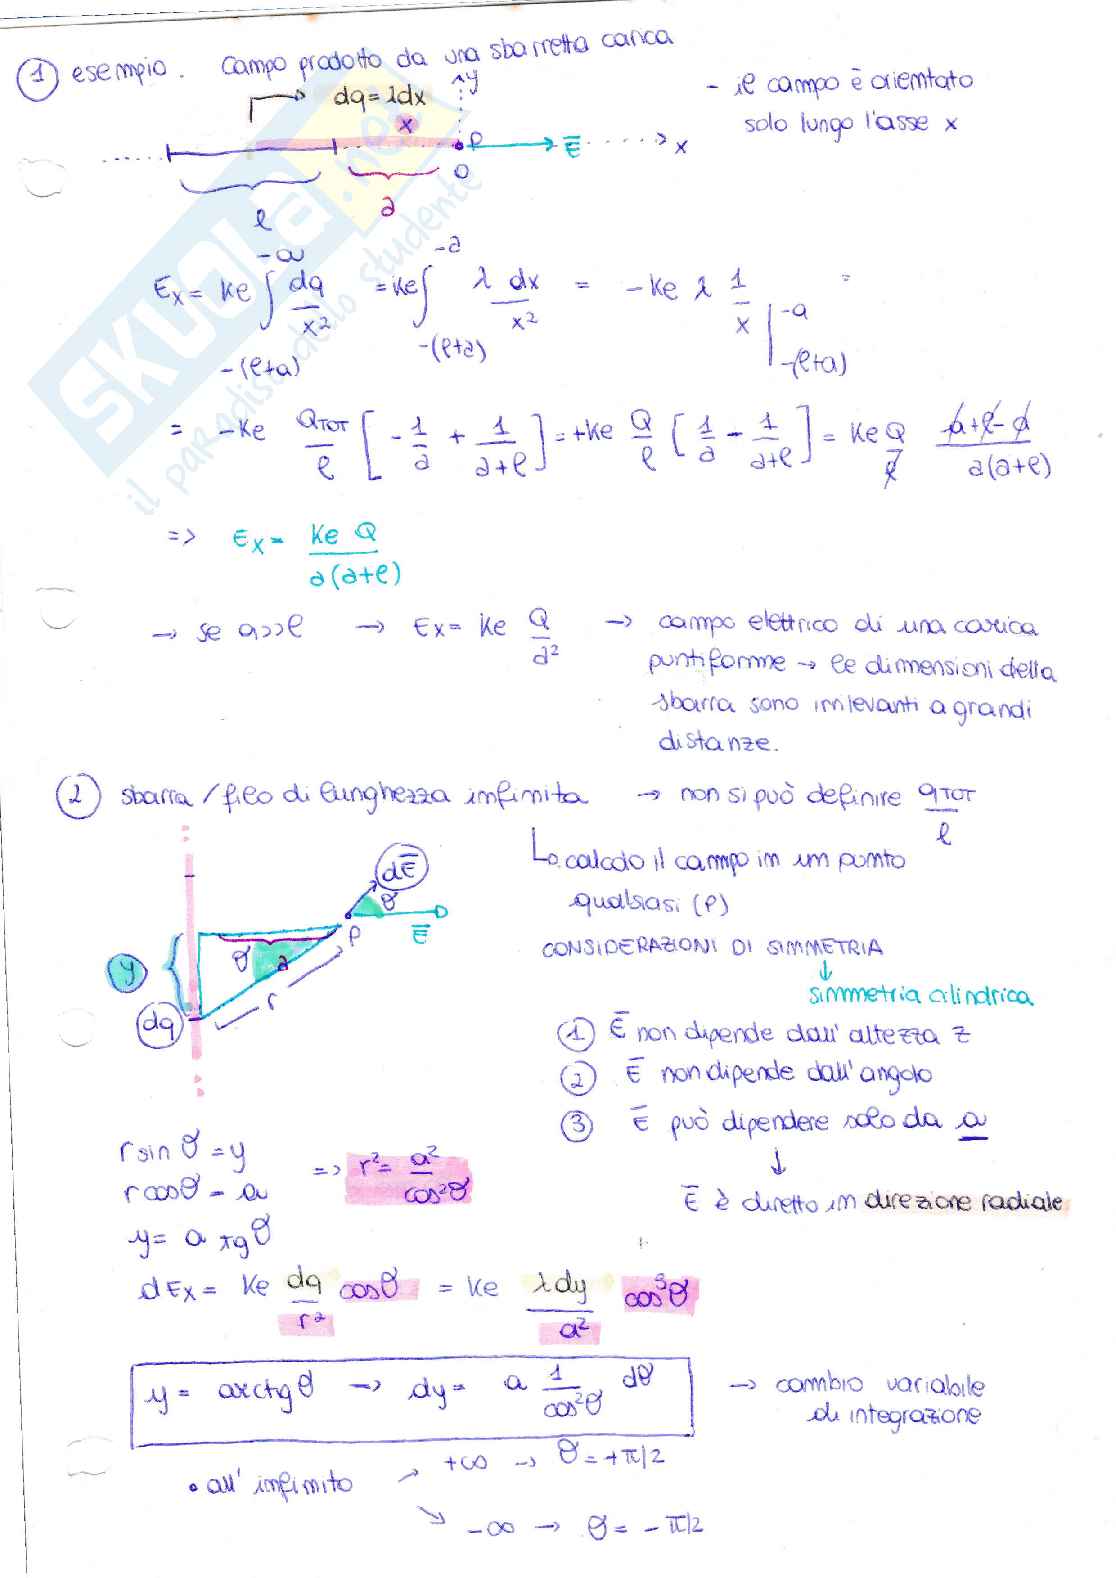 ① esempio. Campo prodotto da una sbarretta carica
dq = λdx
y
- il campo è orientato
solo lungo l'asse x
x
P
Ē
x
O
l
a
Ex = Ke ∫_{-(l+a)}^{-a} dq/x² = Ke ∫_{-(l+a)}^{-a} λ dx/x² = -Ke λ 1/x |_{-(l+a)}^{-a} =
= -Ke QTOT/l [ -1/a + 1/(a+l) ] = +Ke Q/l [ 1/a - 1/(a+l) ] = Ke Q/l (a+l-a)/(a(a+l))
=> Ex = Ke Q/(a(a+l))
→ se a>>l → Ex = Ke Q/a² → campo elettrico di una carica
puntiforme → le dimensioni della
sbarra sono irrilevanti a grandi
distanze.
② sbarra/filo di lunghezza infinita → non si può definire qTOT/l
↳ calcolo il campo in un punto
qualsiasi (P)
dĒ
θ
P
Ē
y
θ
a
r
dq
CONSIDERAZIONI DI SIMMETRIA
↓
simmetria cilindrica
① Ē non dipende dall'altezza z
② Ē non dipende dall'angolo
③ Ē può dipendere solo da a
↓
Ē è diretto in direzione radiale
r sin θ = y
r cos θ = a => r² = a²/cos²θ
y = a tg θ
dEx = Ke dq/r² cosθ = Ke λdy/a² cos³θ
y = arctg θ → dy = a 1/cos²θ dθ → cambio variabile
di integrazione
• all' infinito → +∞ → θ = +π/2
↘ -∞ → θ = -π/2
SKUOLA.net
il paradiso dello studente